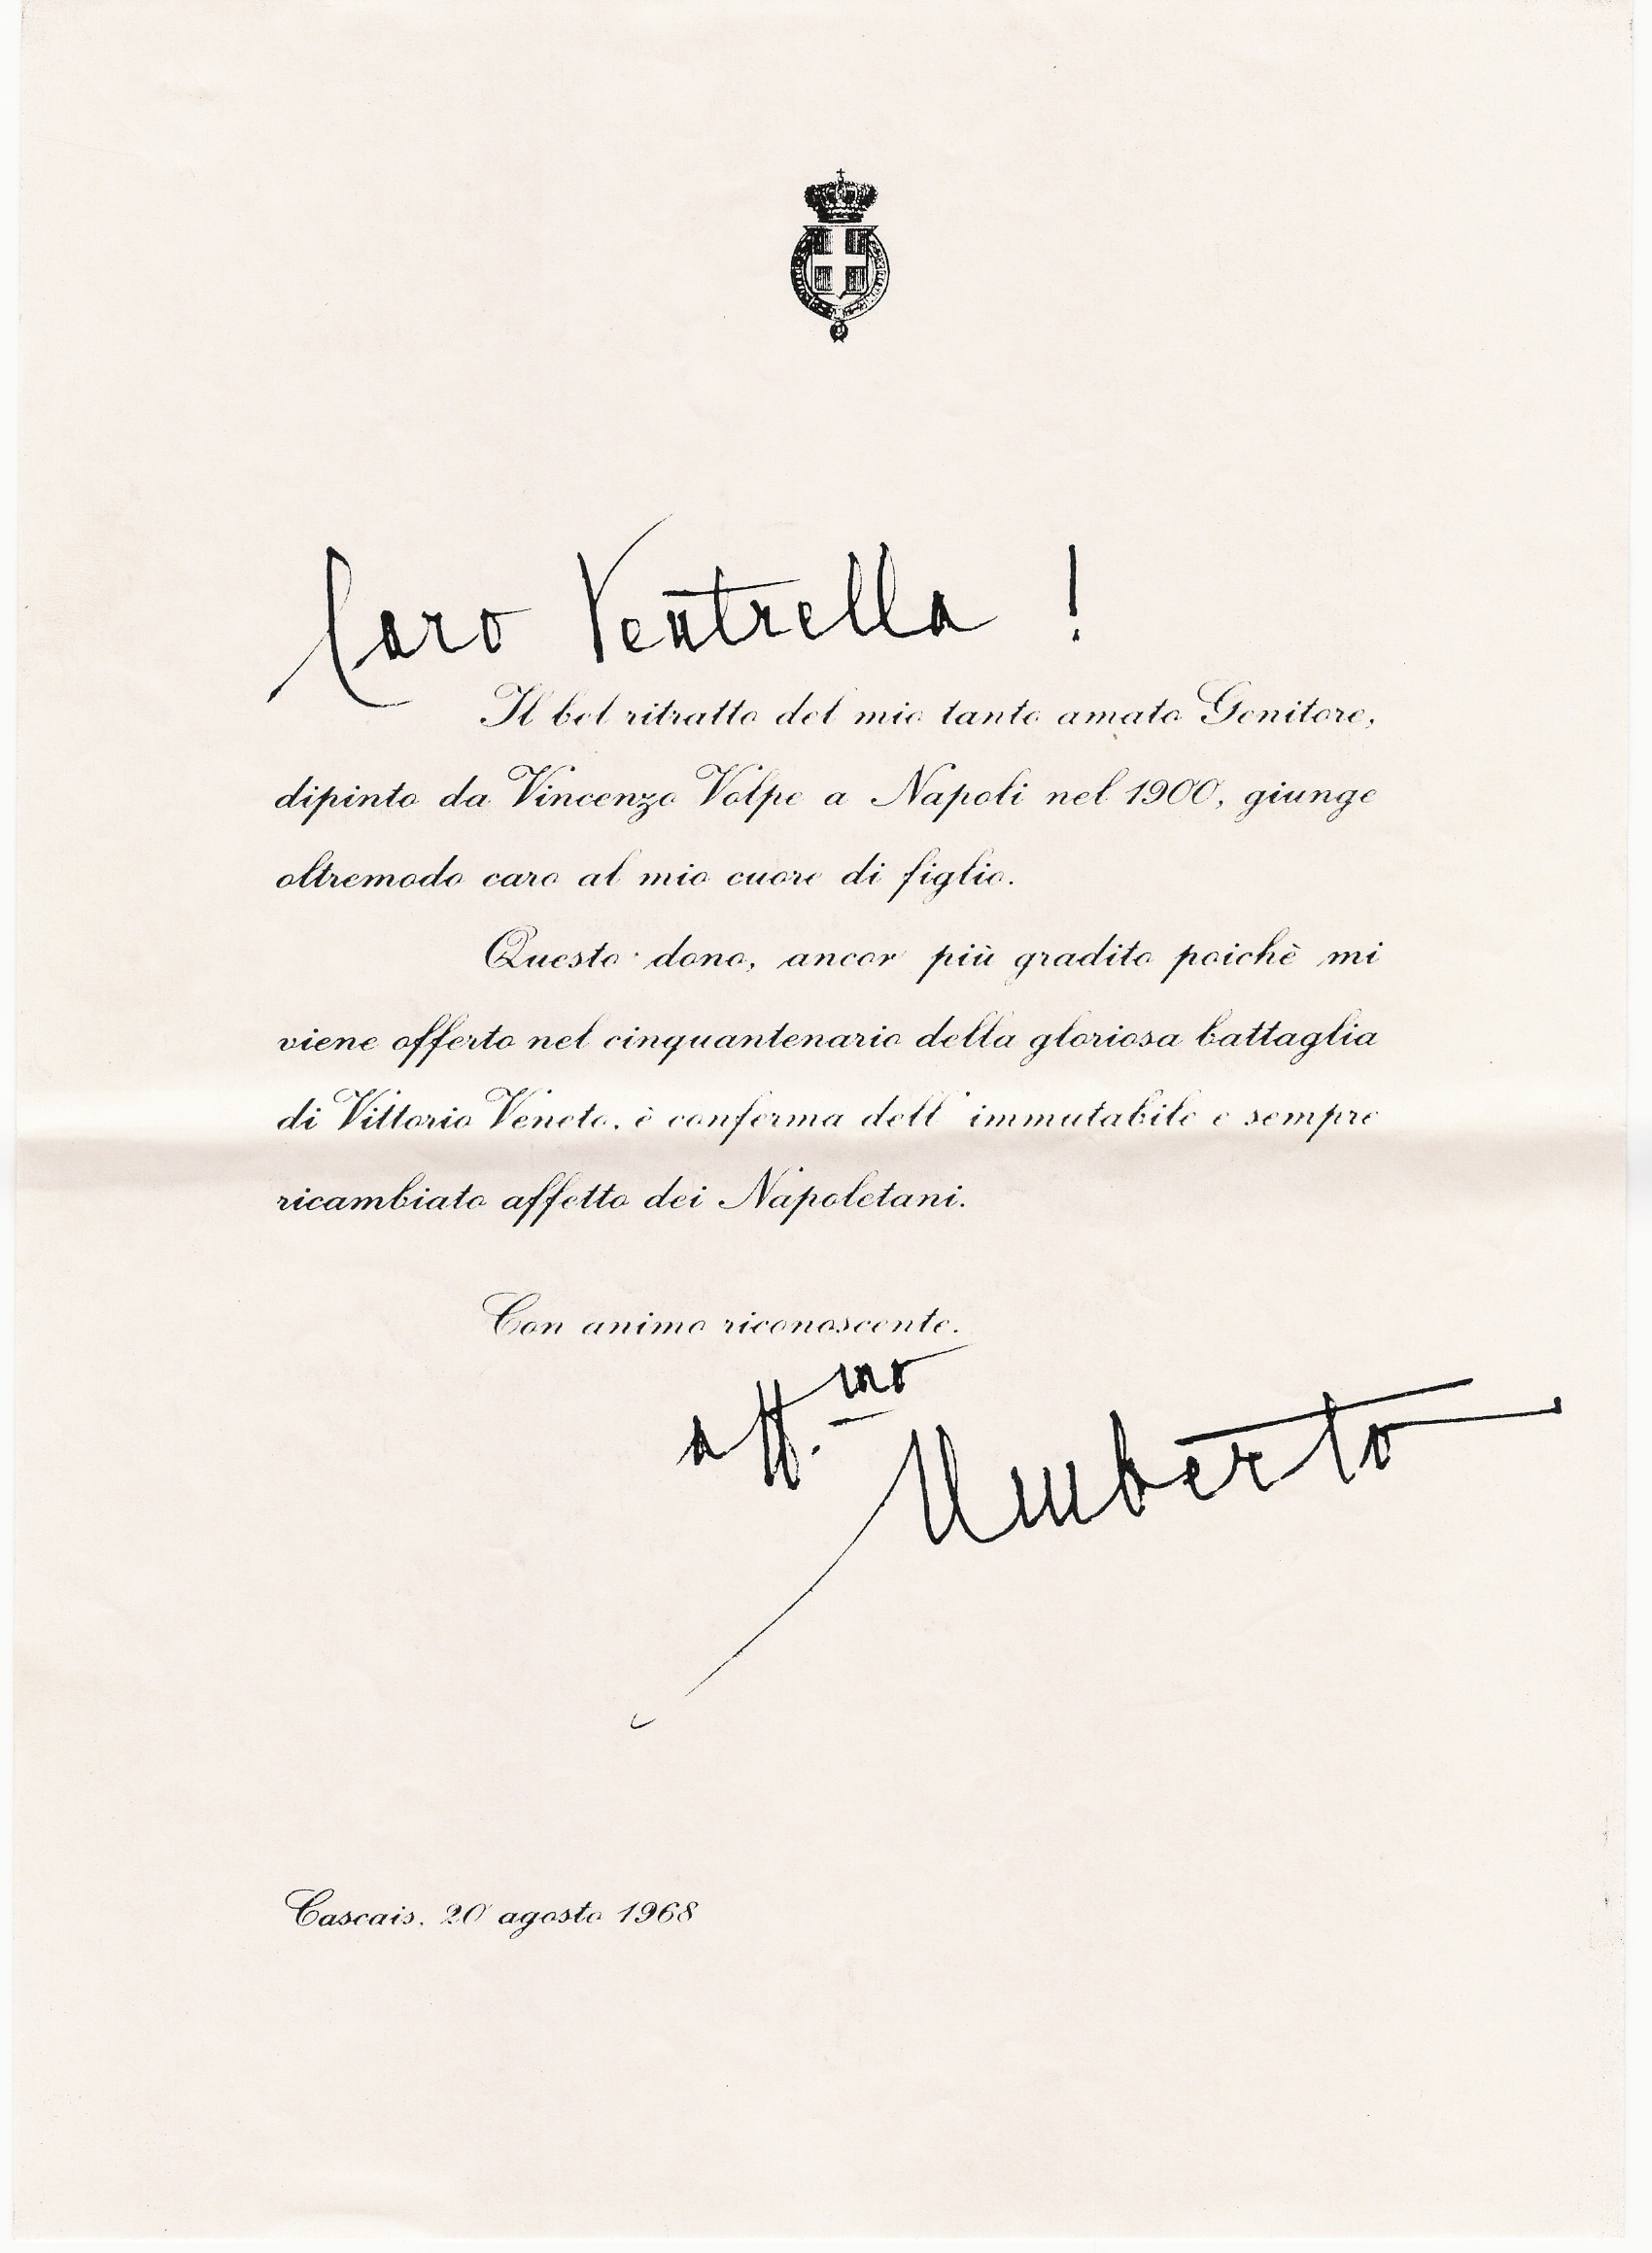 Caro Ventrella !
Il bel ritratto del mio tanto amato Genitore,
dipinto da Vincenzo Volpe a Napoli nel 1900, giunge
oltremodo caro al mio cuore di figlio.
Questo dono, ancor più gradito poichè mi
viene offerto nel cinquantenario della gloriosa battaglia
di Vittorio Veneto, è conferma dell' immutabile e sempre
ricambiato affetto dei Napoletani.
Con animo riconoscente.
aff.mo
Umberto
Cascais, 20 agosto 1968